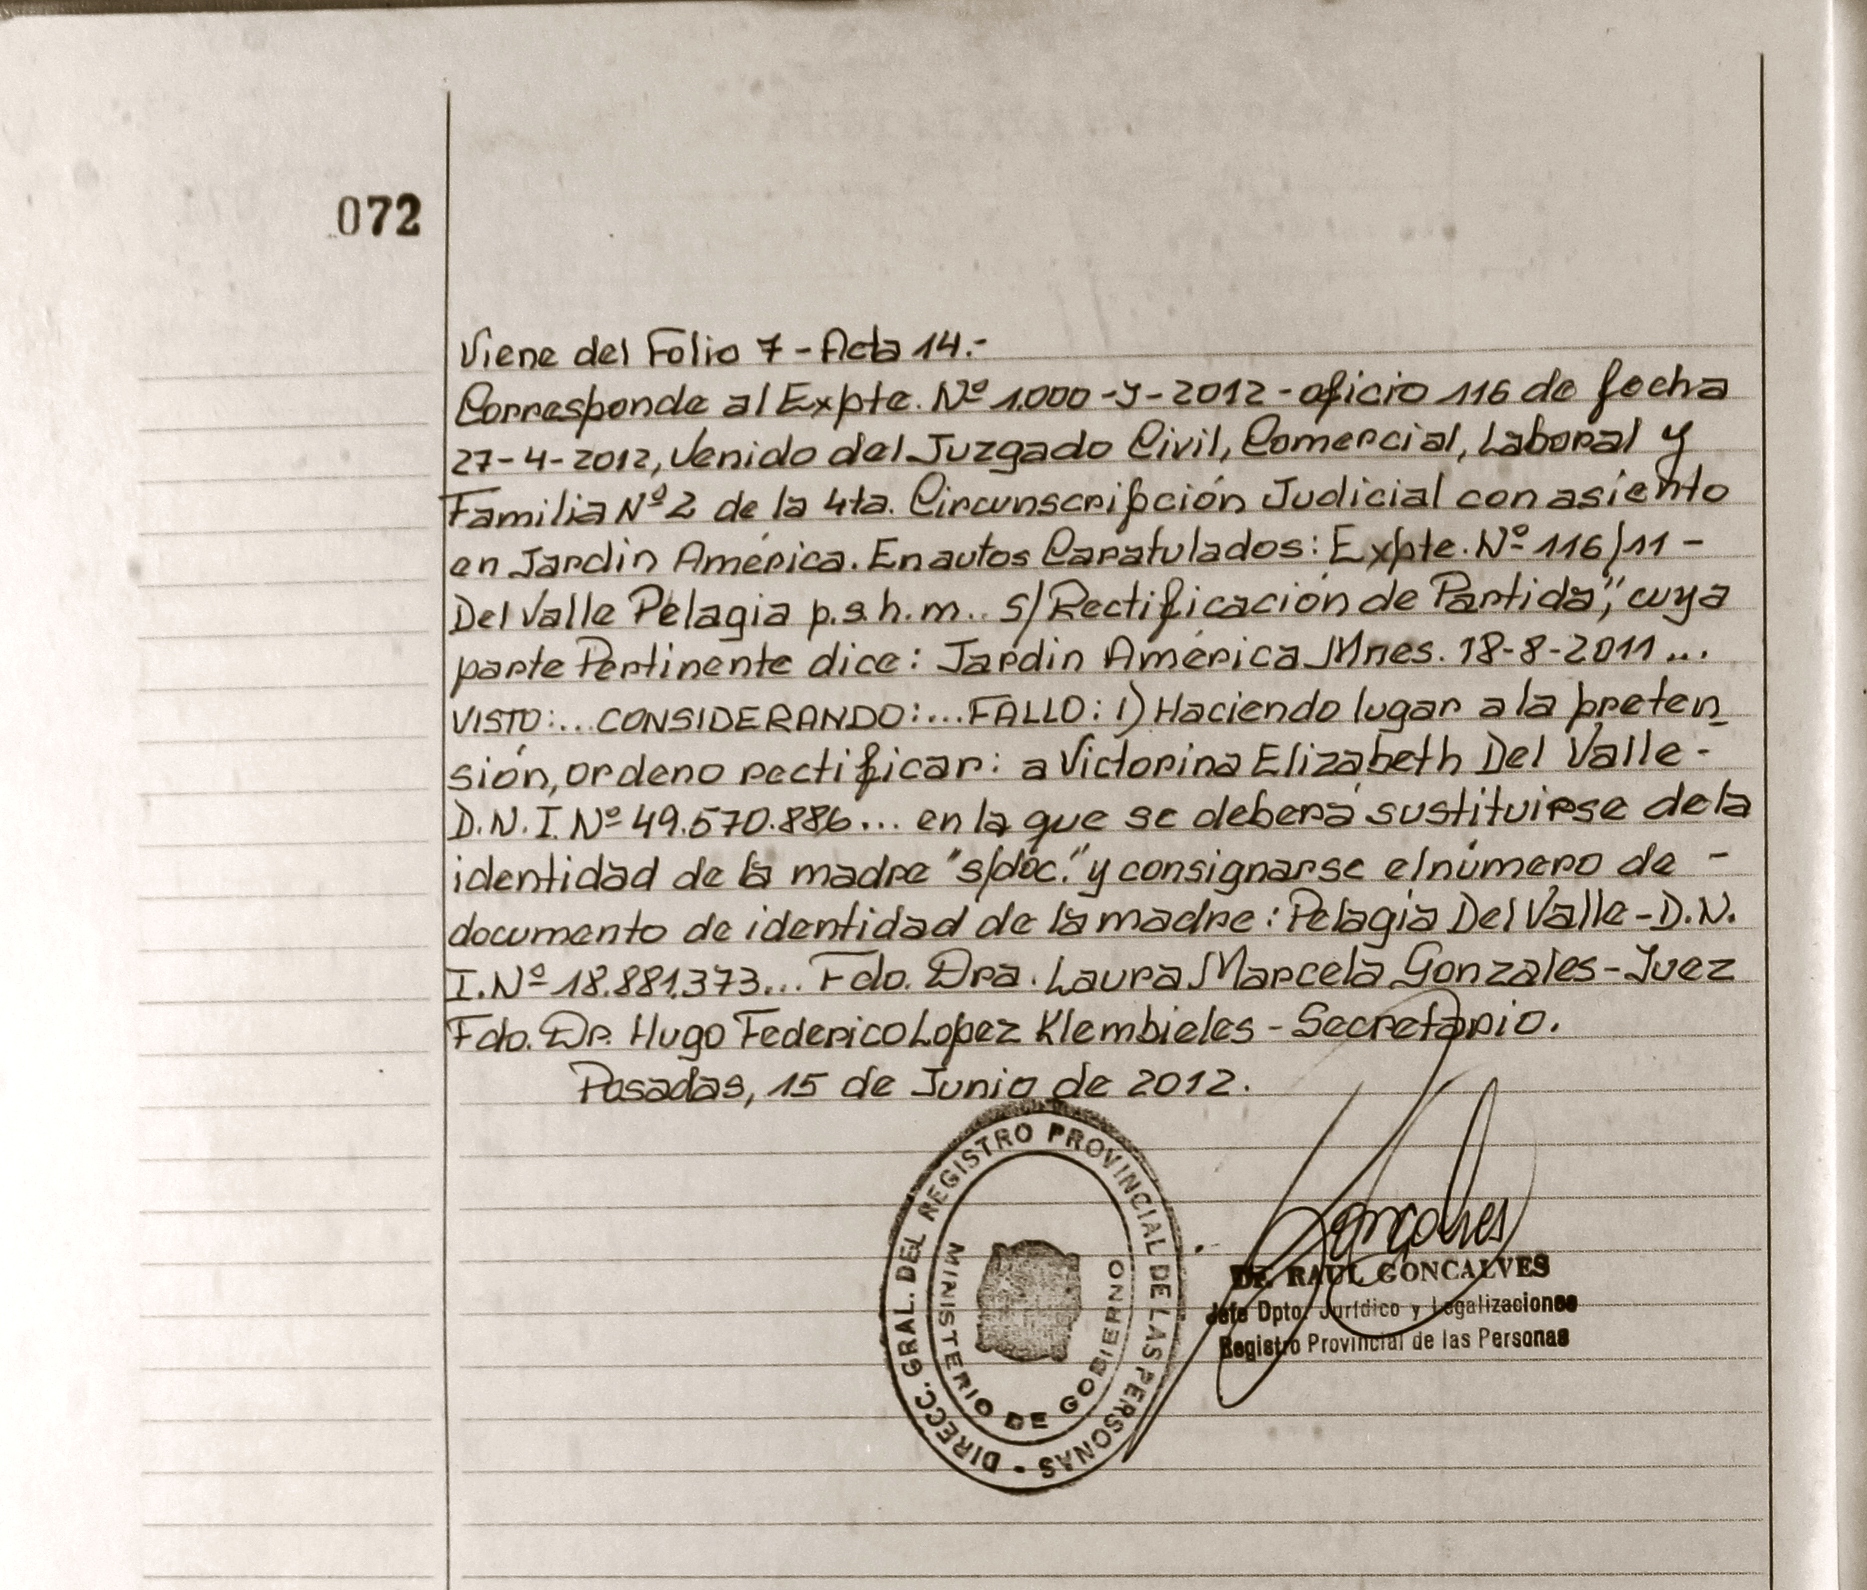 072
Viene del Folio 7 - Acta 14.-
Corresponde al Expte. Nº 1.000 -J- 2012 - oficio 116 de fecha
27-4-2012, Venido del Juzgado Civil, Comercial, Laboral y
Familia Nº 2 de la 4ta. Circunscripción Judicial con asiento
en Jardín América. En autos Caratulados: Expte. Nº 116/11 -
Del Valle Pelagia p.s.h.m.. S/Rectificación de Partida", cuya
parte Pertinente dice: Jardín América Mnes. 18-8-2011...
VISTO:...CONSIDERANDO:...FALLO: 1) Haciendo lugar a la preten_
sión, ordeno rectificar: a Victorina Elizabeth Del Valle -
D.N.I. Nº 49.570.886... en la que se deberá sustituirse de la
identidad de la madre "s/doc." y consignarse el número de -
documento de identidad de la madre: Pelagia Del Valle - D.N.
I. Nº 18.881.373... Fdo. Dra. Laura Marcela Gonzales - Juez
Fdo. Dr. Hugo Federico Lopez Klembieles - Secretario.
Posadas, 15 de Junio de 2012.
DIRECC. GRAL. DEL REGISTRO PROVINCIAL DE LAS PERSONAS -
MINISTERIO DE GOBIERNO
Goncalves
Dr. RAUL GONCALVES
Jefe Dpto. Jurídico y Legalizaciones
Registro Provincial de las Personas